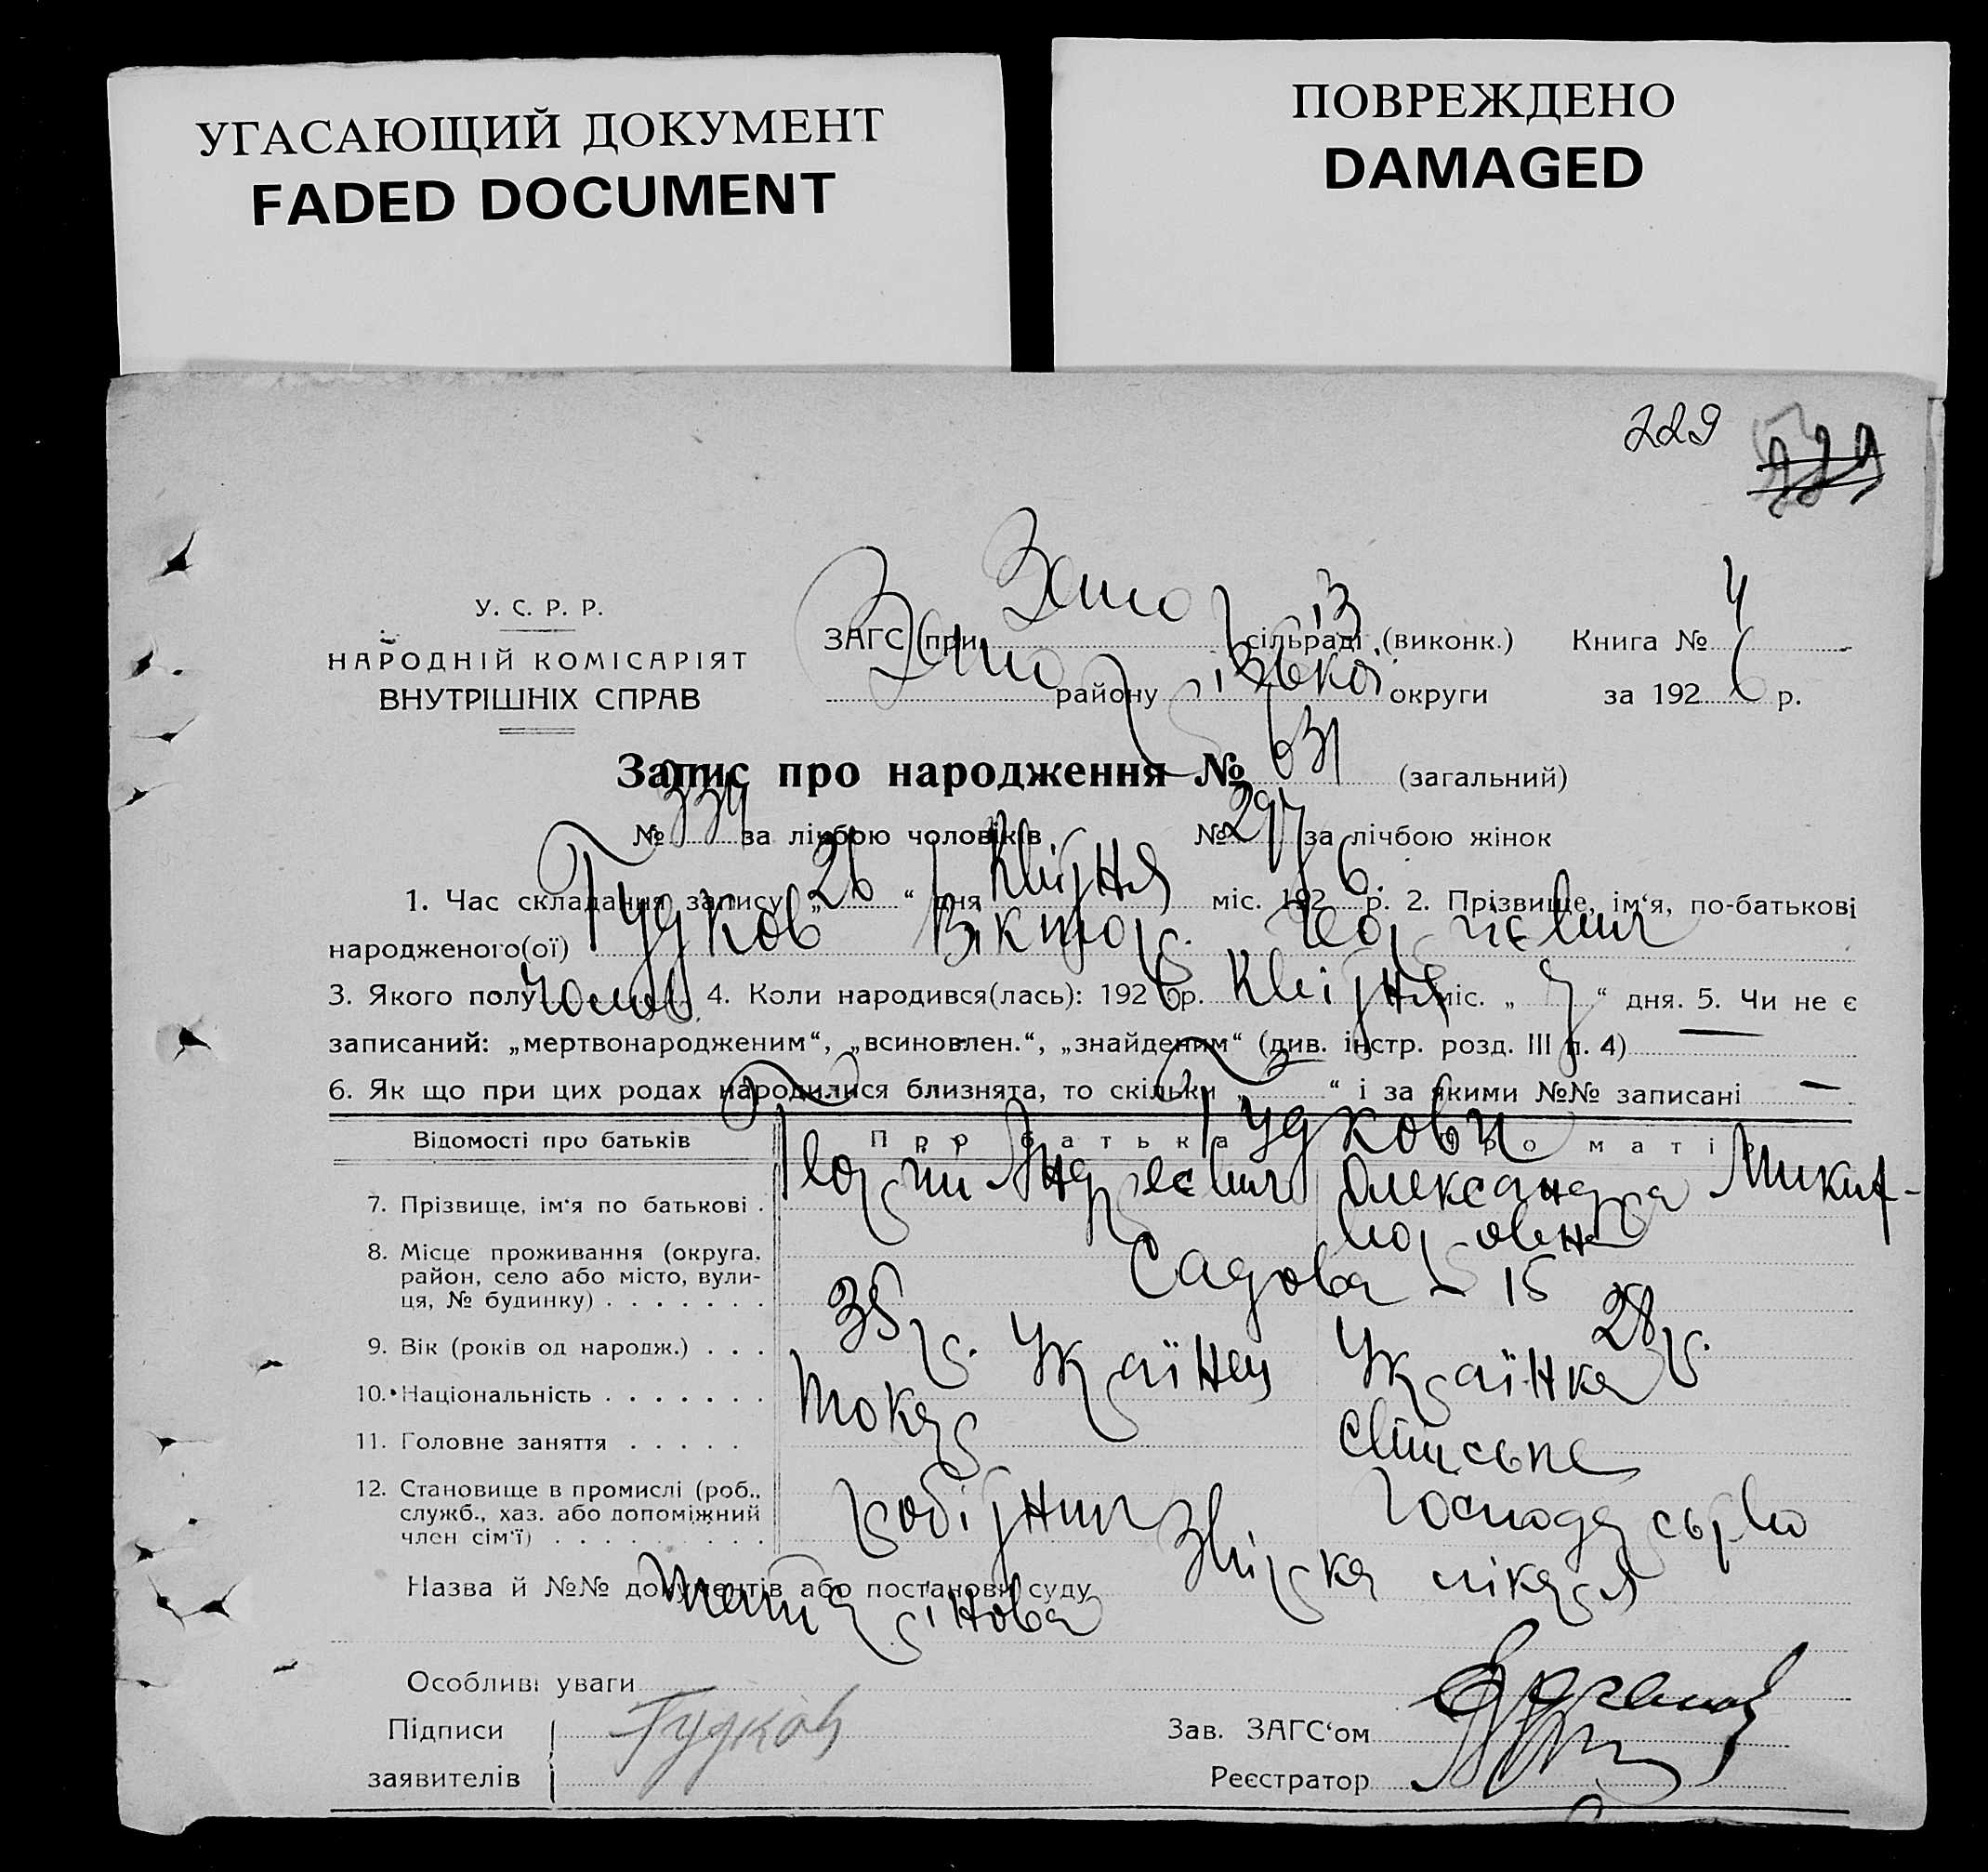 УГАСАЮЩИЙ ДОКУМЕНТ
FADED DOCUMENT
ПОВРЕЖДЕНО
DAMAGED
229
229
У. С. Р. Р.
НАРОДНІЙ КОМІСАРІЯТ
ВНУТРІШНІХ СПРАВ
ЗАГС при сільраді (виконк.) Книга № 4
району округи за 1926 р.
Запис про народження № 631 (загальний)
№ 334 за лічбою чоловіків № 297 за лічбою жінок
1. Час складання запису „26“ дня Квітня міс. 1926 р. 2. Прізвище, ім‘я, по-батькові
народженого(ої) Гудков Віктор Георгієвич
3. Якого полу чолов. 4. Коли народився(лась): 1926 р. Квітня міс. „7“ дня. 5. Чи не є
записаний: „мертвонародженим“, „всиновлен.“, „знайденим“ (див. інстр. розд. III п. 4) —
6. Як що при цих родах народилися близнята, то скільки „ — “ і за якими №№ записані —
Гудкови
Відомості про батьків Про батька Про матір
7. Прізвище, ім‘я по батькові . Георгій Андреєвич Олександра Микифоровна
8. Місце проживання (округа, район, село або місто, вули-
ця, № будинку) . . . . . . . Садова – 15
9. Вік (років од народж.) . . . 35 р. 28 р.
10. Національність . . . . . . . Українец Українка
11. Головне заняття . . . . . Токар
12. Становище в промислі (роб.,
служб., хаз. або допоміжний
член сім‘ї) . . . . . . . . . робітник господарство
Назва й №№ документів або постанови суду Звірка лікаря
Особливі уваги
Підписи Гудков Зав. ЗАГС‘ом
заявителів Реєстратор